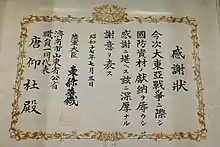 感謝狀
今次大東亞戰爭ニ際シ
國防資材獻納ノ房ウシ
感謝ニ堪ヘス玆ニ深厚ナル
謝意ヲ表ス
昭和十七年七月三日
陸軍大臣 東條英機
濟南市山東省公署
職員一同代表
唐仰杜殿